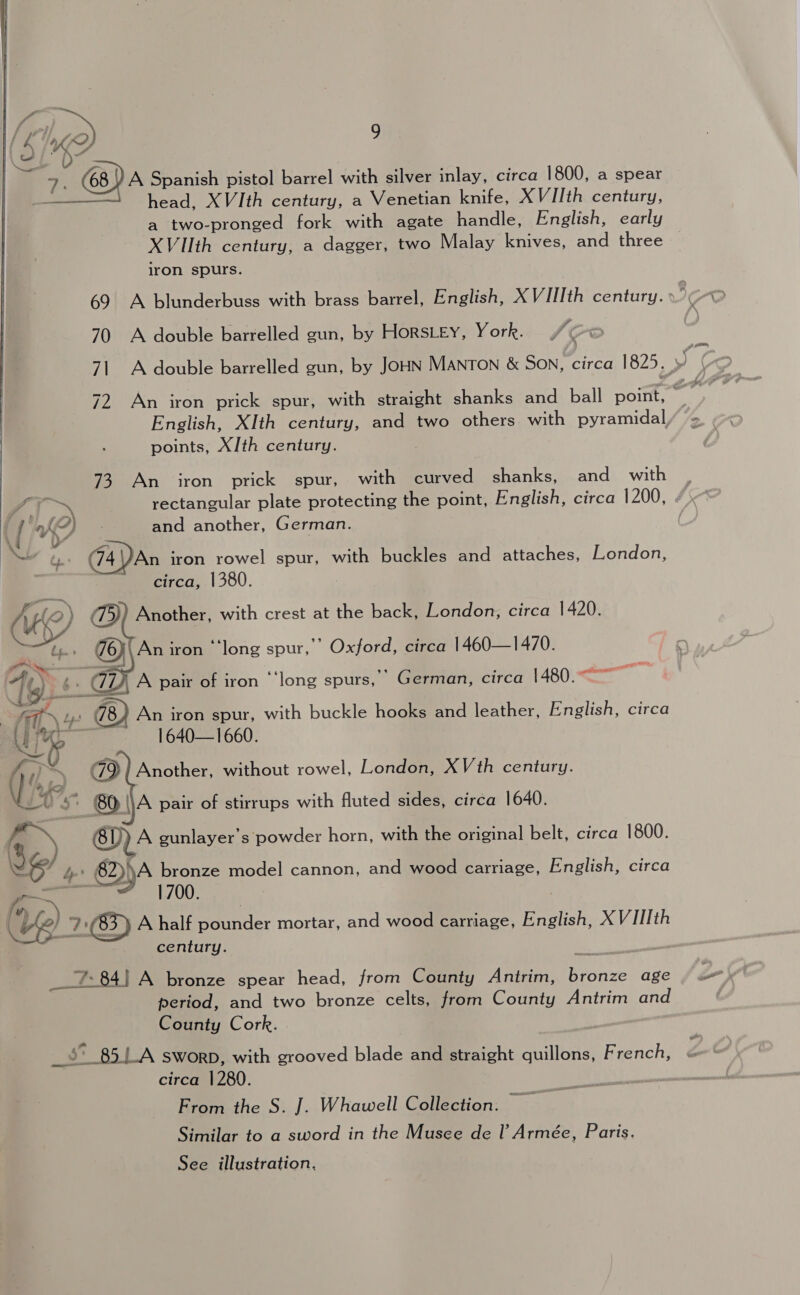 9
68 A Spanish pistol barrel with silver inlay, circa 1800, a spear
head, XVIth century, a Venetian knife, XVIIth century,
a two-pronged fork with agate handle, English, early
XVIIth century, a dagger, two Malay knives, and three
iron spurs.
69 A blunderbuss with brass barrel, English, XVIIIth century.
70 A double barrelled gun, by HORSLEY, York.
71 A double barrelled gun, by JOHN MANTON & SON, circa 1825.
72 An iron prick spur, with straight shanks and ball point,
English, XIth century, and two others with pyramidal
points, XIth century.
73 An iron prick spur, with curved shanks, and with
rectangular plate protecting the point, English, circa 1200,
and another, German.
74 An iron rowel spur, with buckles and attaches, London,
circa, 1380.
75 Another, with crest at the back, London, circa 1420.
76 An iron “long spur,” Oxford, circa 1460—1470.
77 A pair of iron “long spurs,” German, circa 1480.
78 An iron spur, with buckle hooks and leather, English, circa
1640—1660.
79 Another, without rowel, London, XVth century.
80 A pair of stirrups with fluted sides, circa 1640.
81 A gunlayer's powder horn, with the original belt, circa 1800.
82 A bronze model cannon, and wood carriage, English, circa
1700.
83 A half pounder mortar, and wood carriage, English, XVIIIth
century.
84 A bronze spear head, from County Antrim, bronze age
period, and two bronze celts, from County Antrim and
County Cork.
85 A SWORD, with grooved blade and straight quillons, French,
circa 1280.
From the S. J. Whawell Collection.
Similar to a sword in the Musee de l'Armée, Paris.
See illustration.